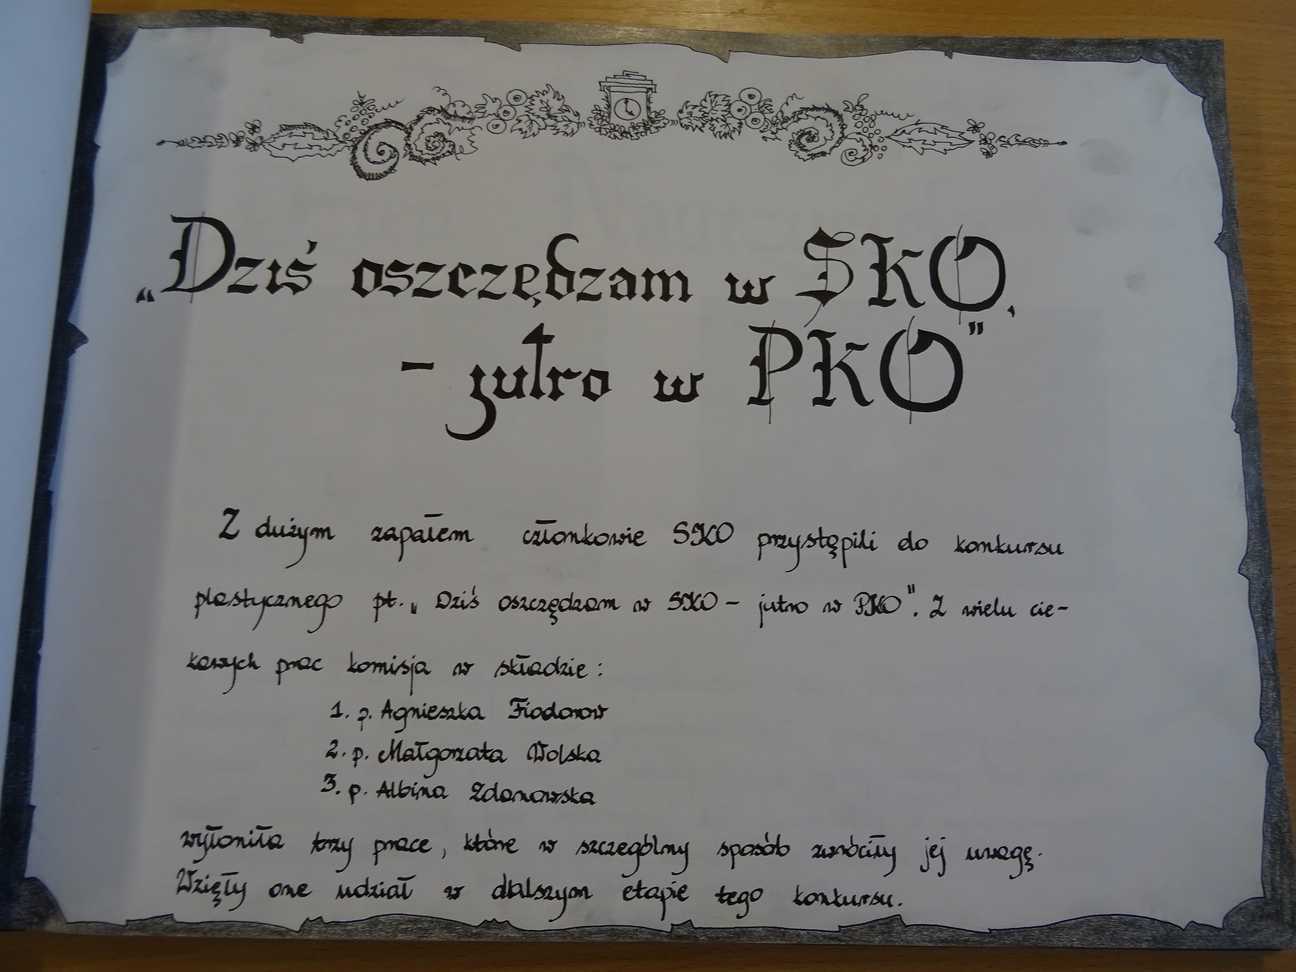 „Dziś oszczędzam w SKO,
- jutro w PKO”
Z dużym zapałem członkowie SKO przystąpili do konkursu
plastycznego pt. „Dziś oszczędzam w SKO - jutro w PKO”. Z wielu cie-
kawych prac komisja w składzie:
1. p. Agnieszka Fiodorow
2. p. Małgorzata Wolska
3. p. Albina Zdanowska
wyłoniła trzy prace, które w szczególny sposób zwróciły jej uwagę.
Wzięły one udział w dalszym etapie tego konkursu.